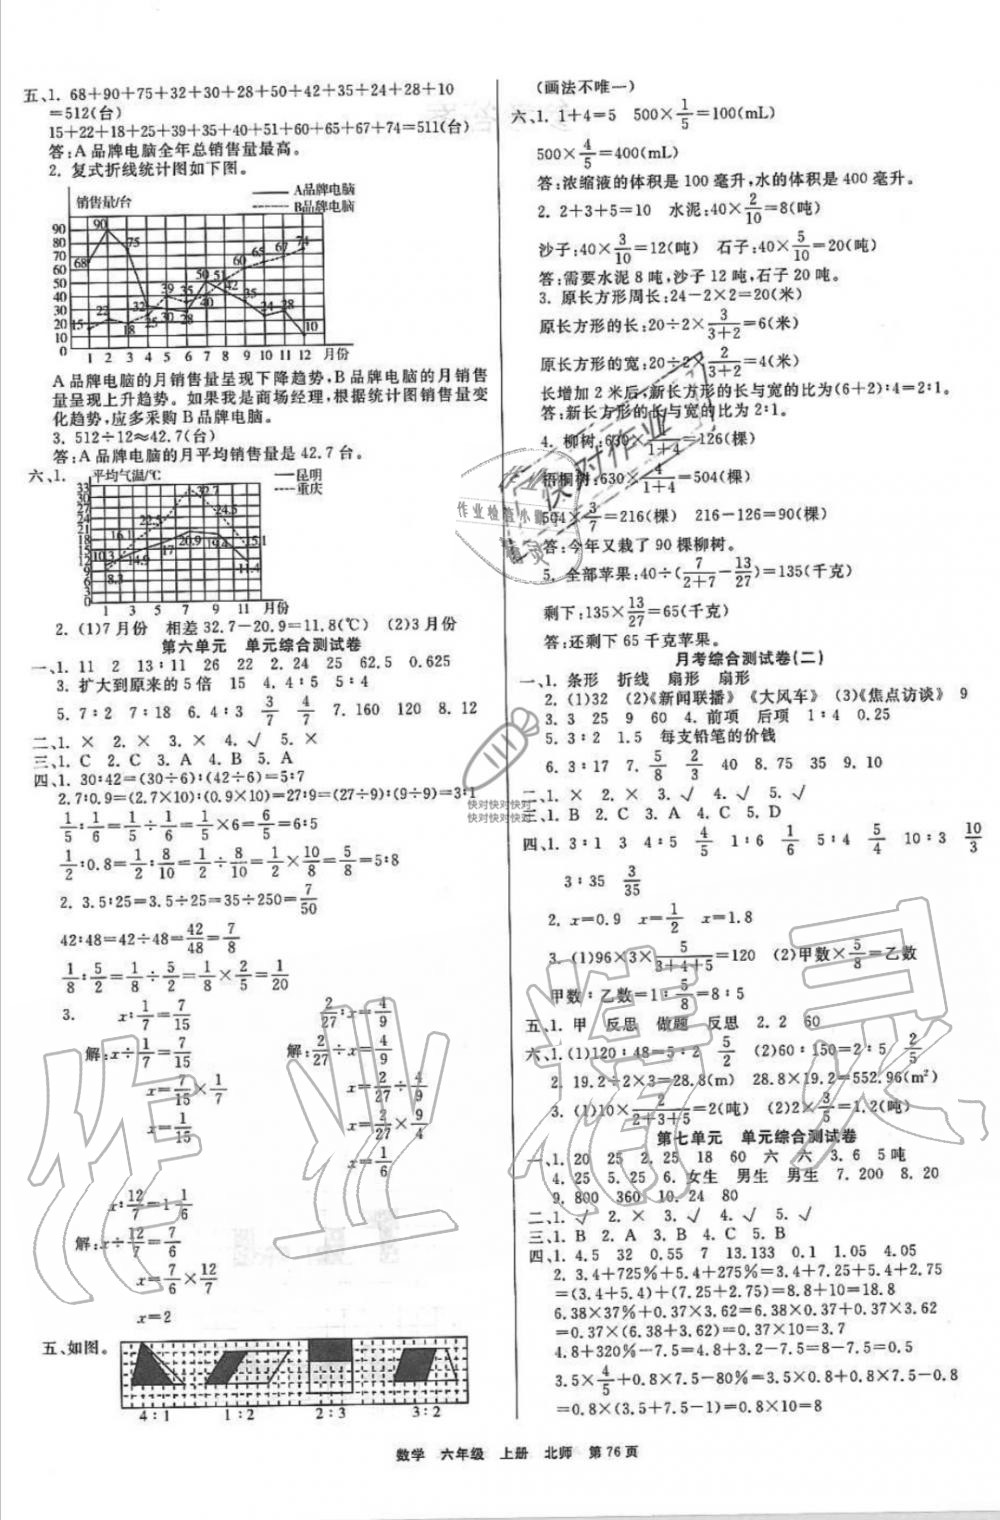 五、1. 68+90+75+32+30+28+50+42+35+24+28+10
=512(台)
15+22+18+25+39+35+40+51+60+65+67+74=511(台)
答:A品牌电脑全年总销售量最高。
2. 复式折线统计图如下图。
销售量/台
A品牌电脑
B品牌电脑
90 80 70 60 50 40 30 20 10 0
68 90 75 32 30 28 50 42 35 24 28 10
15 22 18 25 39 35 40 51 60 65 67 74
1 2 3 4 5 6 7 8 9 10 11 12 月份
A品牌电脑的月销售量呈现下降趋势,B品牌电脑的月销售
量呈现上升趋势。如果我是商场经理,根据统计图销售量变
化趋势,应多采购B品牌电脑。
3. 512÷12≈42.7(台)
答:A品牌电脑的月平均销售量是42.7台。
六、1. 平均气温/℃
昆明
重庆
33 30 27 24 21 18 15 12 9 6 3 0
10.3 14.9 17 20.9 19.4 11.4
8.3 16.1 22.5 32.7 24.5 15.1
1 3 5 7 9 11 月份
2. (1)7月份 相差32.7-20.9=11.8(℃) (2)3月份
第六单元 单元综合测试卷
一、1. 11 2 13∶11 26 22 2. 24 25 62.5 0.625
3. 扩大到原来的5倍 15 4. 4∶5 5∶4
5. 7∶2 7∶18 6. 4∶3 3/7 4/7 7. 160 120 8. 12
二、1. × 2. × 3. × 4. √ 5. ×
三、1. C 2. C 3. A 4. B 5. A
四、1. 30∶42=(30÷6)∶(42÷6)=5∶7
2.7∶0.9=(2.7×10)∶(0.9×10)=27∶9=(27÷9)∶(9÷9)=3∶1
1/5∶1/6=1/5÷1/6=1/5×6=6/5=6∶5
1/2∶0.8=1/2∶8/10=1/2÷8/10=1/2×10/8=5/8=5∶8
2. 3.5∶25=3.5÷25=35÷250=7/50
42∶48=42÷48=42/48=7/8
1/8∶5/2=1/8÷5/2=1/8×2/5=1/20
3. x∶1/7=7/15 2/27∶x=4/9
解:x÷1/7=7/15 解:2/27÷x=4/9
x=7/15×1/7 x=2/27÷4/9
x=1/15 x=2/27×9/4
x=1/6
x∶12/7=1 1/6
解:x÷12/7=7/6
x=7/6×12/7
x=2
五、如图。
4∶1 1∶2 2∶3 3∶2
(画法不唯一)
六、1. 1+4=5 500×1/5=100(mL)
500×4/5=400(mL)
答:浓缩液的体积是100毫升,水的体积是400毫升。
2. 2+3+5=10 水泥:40×2/10=8(吨)
沙子:40×3/10=12(吨) 石子:40×5/10=20(吨)
答:需要水泥8吨,沙子12吨,石子20吨。
3. 原长方形周长:24-2×2=20(米)
原长方形的长:20÷2×3/(3+2)=6(米)
原长方形的宽:20÷2×2/(3+2)=4(米)
长增加2米后,新长方形的长与宽的比为(6+2)∶4=2∶1。
答:新长方形的长与宽的比为2∶1。
4. 柳树:630×1/(1+4)=126(棵)
梧桐树:630×4/(1+4)=504(棵)
504×3/7=216(棵) 216-126=90(棵)
答:今年又栽了90棵柳树。
5. 全部苹果:40÷(7/(2+7)-13/27)=135(千克)
剩下:135×13/27=65(千克)
答:还剩下65千克苹果。
月考综合测试卷(二)
一、1. 条形 折线 扇形 扇形
2. (1)32 (2)《新闻联播》《大风车》 (3)《焦点访谈》 9
3. 3 25 9 60 4. 前项 后项 1∶4 0.25
5. 3∶2 1.5 每支铅笔的价钱
6. 3∶17 7. 5/8 2/3 40 8. 75 35 9. 10
二、1. × 2. × 3. √ 4. √ 5. √
三、1. B 2. C 3. A 4. C 5. D
四、1. 3∶1 3 4∶5 4/5 1∶6 1/6 5∶4 5/4 10∶3 10/3
3∶35 3/35
2. x=0.9 x=1/2 x=1.8
3. (1)96×3×5/(3+4+5)=120 (2)甲数×5/8=乙数
甲数∶乙数=1∶5/8=8∶5
五、1. 甲 反思 做题 反思 2. 2 60
六、1. (1)120∶48=5∶2 5/2 (2)60∶150=2∶5 2/5
2. 19.2÷2×3=28.8(m) 28.8×19.2=552.96(m²)
3. (1)10×2/(2+3+5)=2(吨) (2)2×3/5=1.2(吨)
第七单元 单元综合测试卷
一、1. 20 25 2. 25 18 60 六 六 3. 6 5吨
4. 25 5. 25 6. 女生 男生 男生 7. 200 8. 20
9. 800 360 10. 24 80
二、1. √ 2. × 3. √ 4. √ 5. √
三、1. B 2. A 3. C 4. C 5. B
四、1. 4.5 32 0.55 7 13.133 0.1 1.05 4.05
2. 3.4+725%+5.4+275%=3.4+7.25+5.4+2.75
=(3.4+5.4)+(7.25+2.75)=8.8+10=18.8
6.38×37%+0.37×3.62=6.38×0.37+3.62×0.37
=0.37×(6.38+3.62)=0.37×10=3.7
4.8+320%-7.5=4.8+3.2-7.5=8-7.5=0.5
3.5×4/5+0.8×7.5-80%=3.5×0.8+0.8×7.5-0.8
=0.8×(3.5+7.5-1)=0.8×10=8
数学 六年级 上册 北师 第76页
作业精灵
快对作业
作业检查小
快对快对快对
快对快对快对